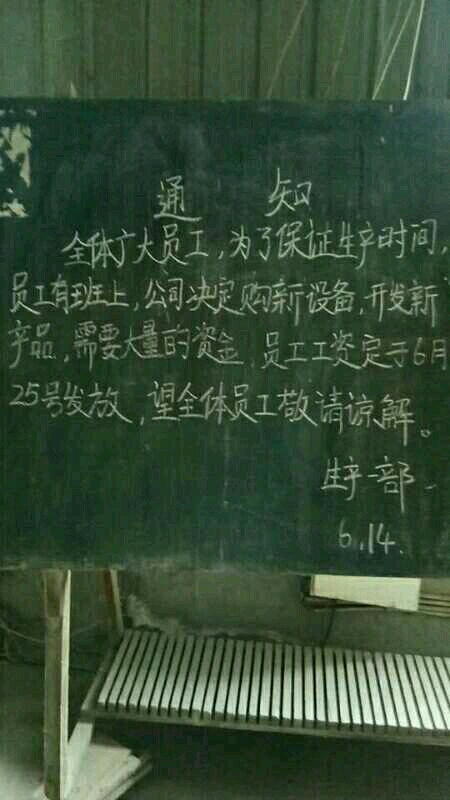 通 知
全体广大员工，为了保证生产时间，
员工有班上，公司决定购新设备，开发新
产品，需要大量的资金，员工工资定于6月
25号发放，望全体员工敬请谅解。
生产一部
6.14.